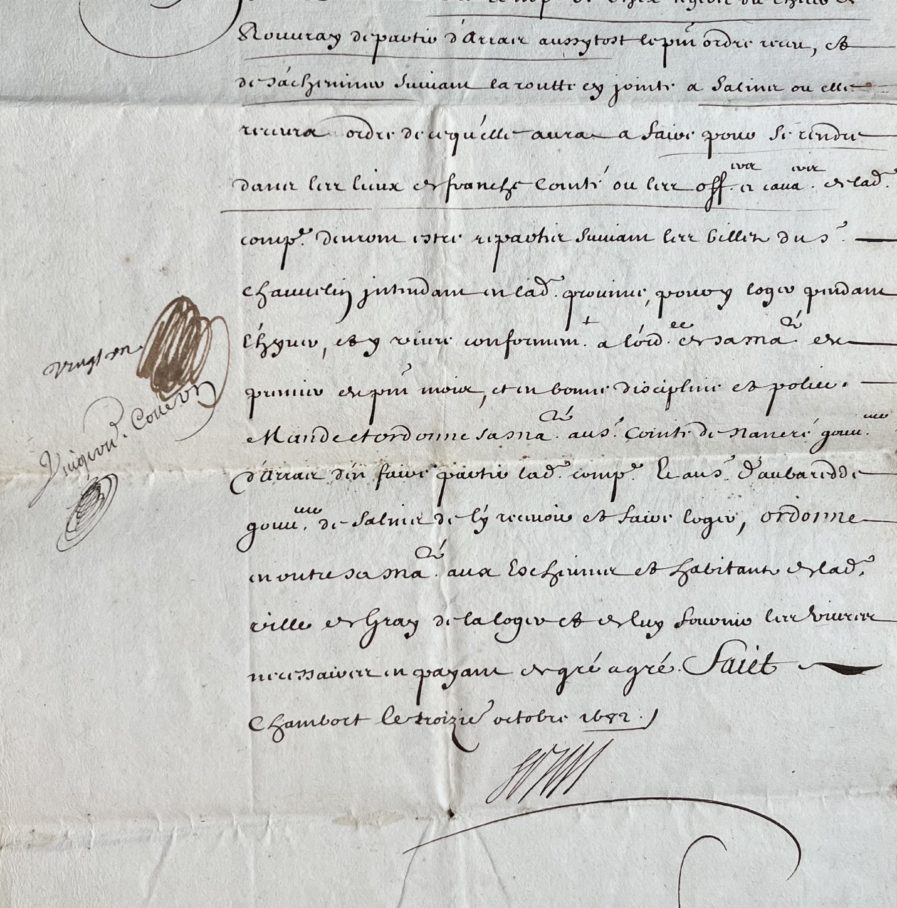 Rouvray de partir d'Arras aussytost le pnt ordre receu, et
de s'acheminer suivant la routte cy jointe a Salins ou elle
recevra ordre de ce qu'elle aura a faire pour se rendre
dans les lieux de franche Comté ou les off.ers et cava.ers de lad.
comp.e devront estre repartis suivant les billets du S.r
Chauvelin jntendant en lad. province, pour y loger pendant
l'hyver, et y vivre conformem.t a l'ord.ce de sa ma.té du
premier du pnt mois, et en bonne discipline et police.
Mande et ordonne sa ma.té au S.r Comte de Nancré gouv.eur
d'Arras d'en faire partir lad. comp.e Et au S.r d'aubaredde
gouv.eur de Salins de l'y recevoir et faire loger, ordonne
en outre sa ma.té aux Eschevins et habitants de lad.
ville de Gray de la loger et de luy fournir les vivres
necessaires en payant de gré a gré. Faict
Chambort le troizie octobre 1682.